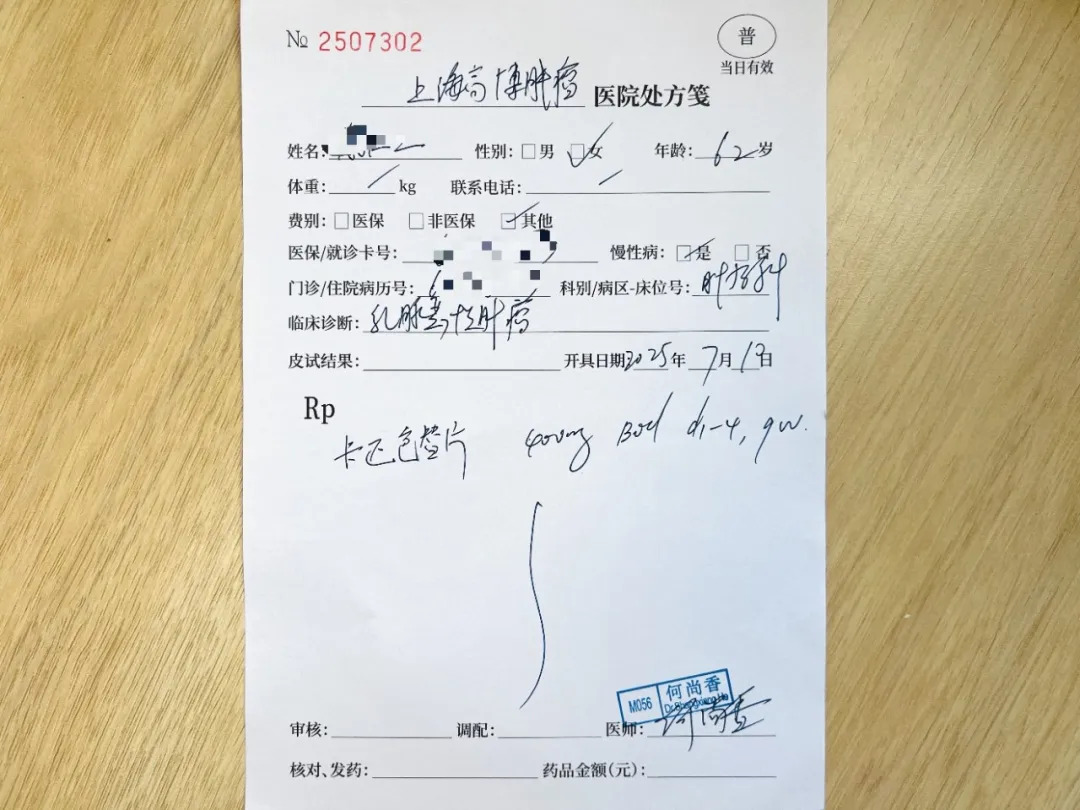 № 2507302
普
当日有效
上海高博肿瘤 医院处方笺
姓名: 性别: □男 ☑女 年龄: 62 岁
体重: / kg 联系电话: /
费别: □医保 □非医保 ☑其他
医保/就诊卡号: 慢性病: ☑是 □否
门诊/住院病历号: 科别/病区-床位号: 肿瘤科
临床诊断: 乳腺恶性肿瘤
皮试结果: 开具日期 2025 年 7 月 13 日
Rp
卡匹色替片 400mg Bid d1-4, qw.
M056 何尚香
审核: 调配: 医师: 何尚香
核对、发药: 药品金额(元):